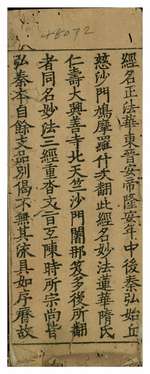 48072
經名正法華東晉安帝隆安年中後秦弘始丘
慈沙門鳩摩羅什次翻此經名妙法蓮華隋氏
仁壽大興善寺北天竺沙門闍那笈多後所翻
者同名妙法三經重沓文旨互陳時所宗尚皆
弘秦本自餘支品別偈不無其流具如序曆故